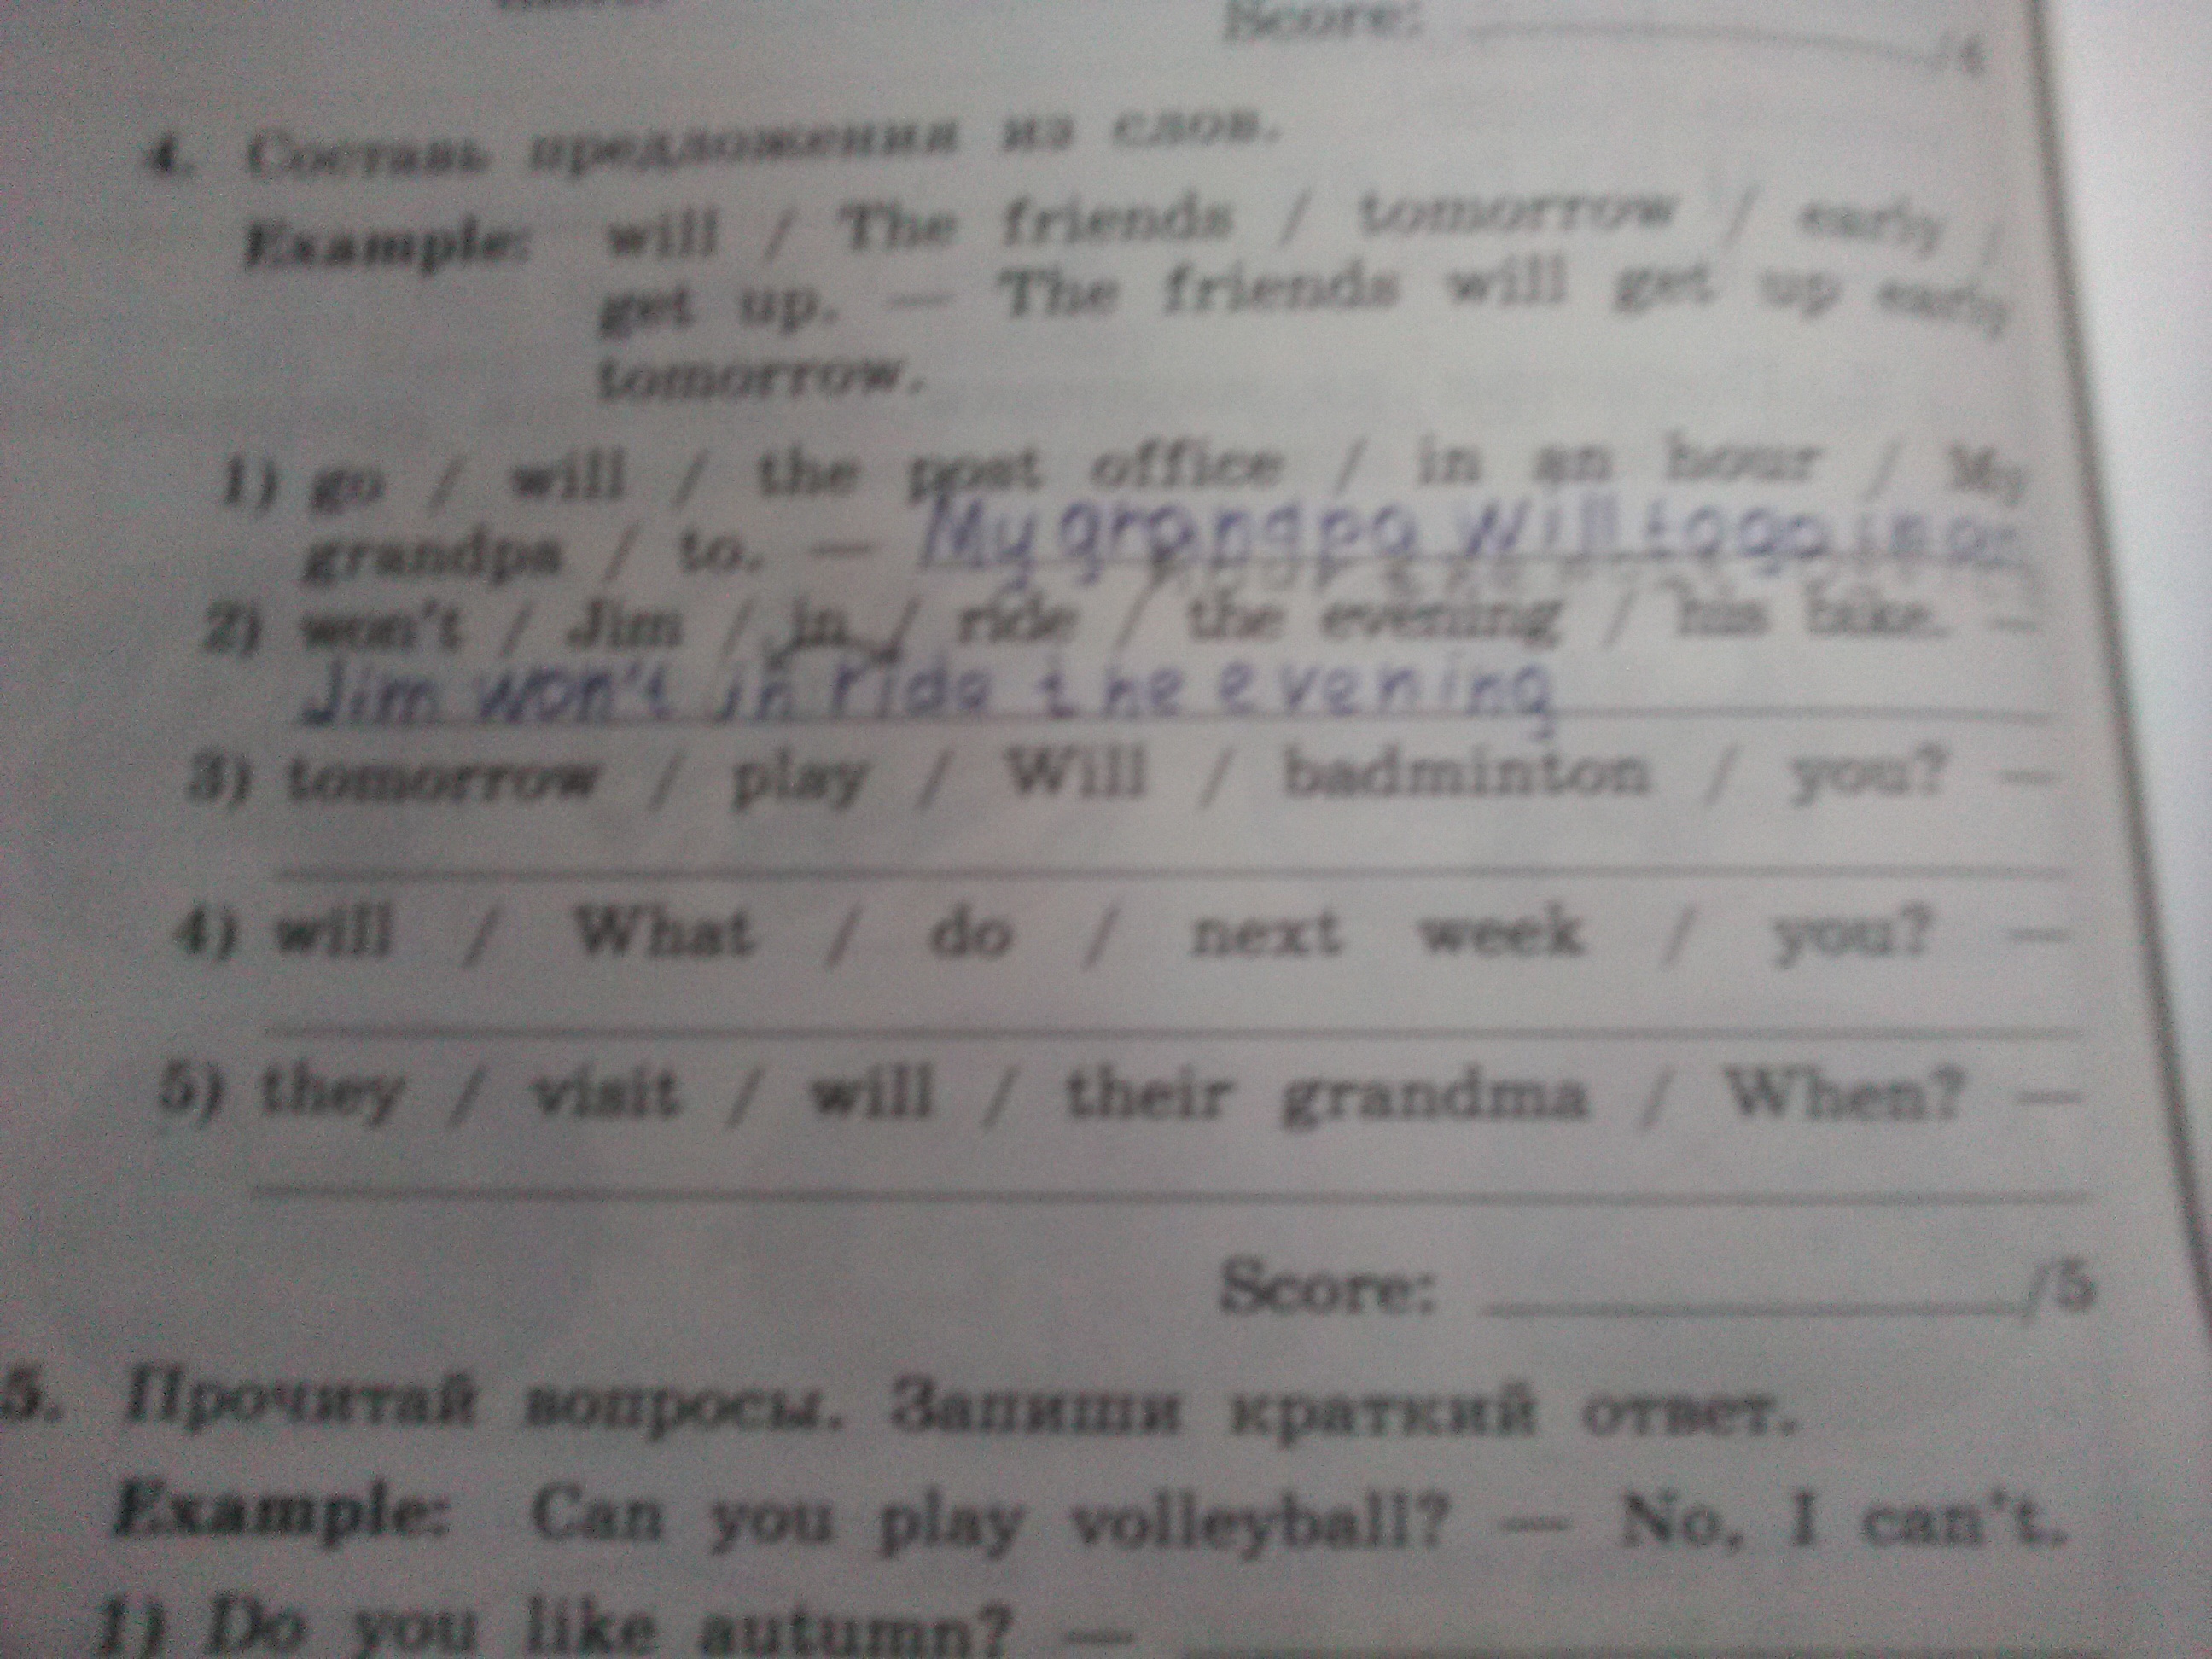 Score: /4
4. Составь предложения из слов.
Example: will / The friends / tomorrow / early /
get up. — The friends will get up early
tomorrow.
1) go / will / the post office / in an hour / My
grandpa / to. — My grandpa will to go in an
2) won't / Jim / in / ride / the evening / his bike. —
Jim won't in ride the evening
3) tomorrow / play / Will / badminton / you? —
4) will / What / do / next week / you? —
5) they / visit / will / their grandma / When? —
Score: /5
5. Прочитай вопросы. Запиши краткий ответ.
Example: Can you play volleyball? — No, I can't.
1) Do you like autumn? —